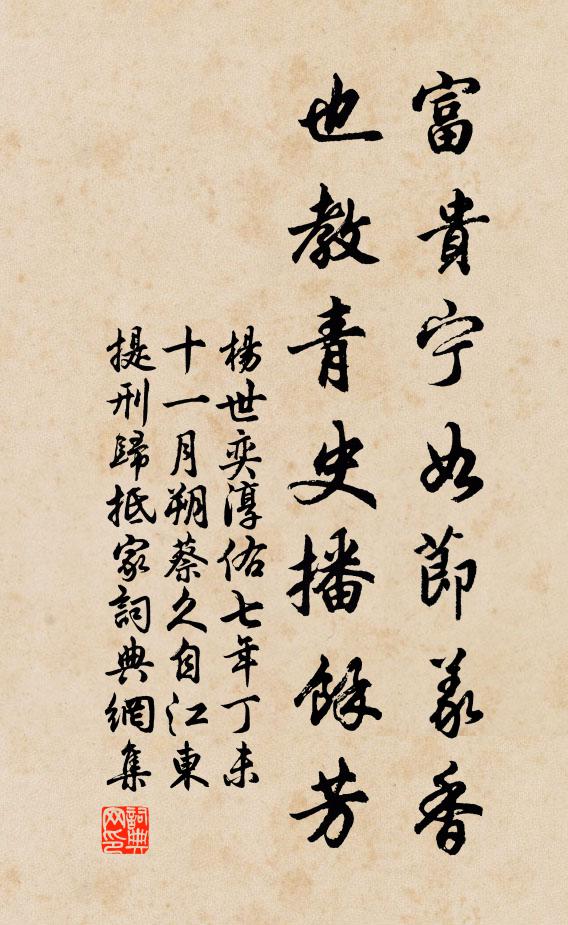 富貴宁如節義香
也教青史播餘芳
楊世奕淳佑七年丁未
十一月朔蔡久自江東
提刑歸抵家詞典網集
詞典
网印